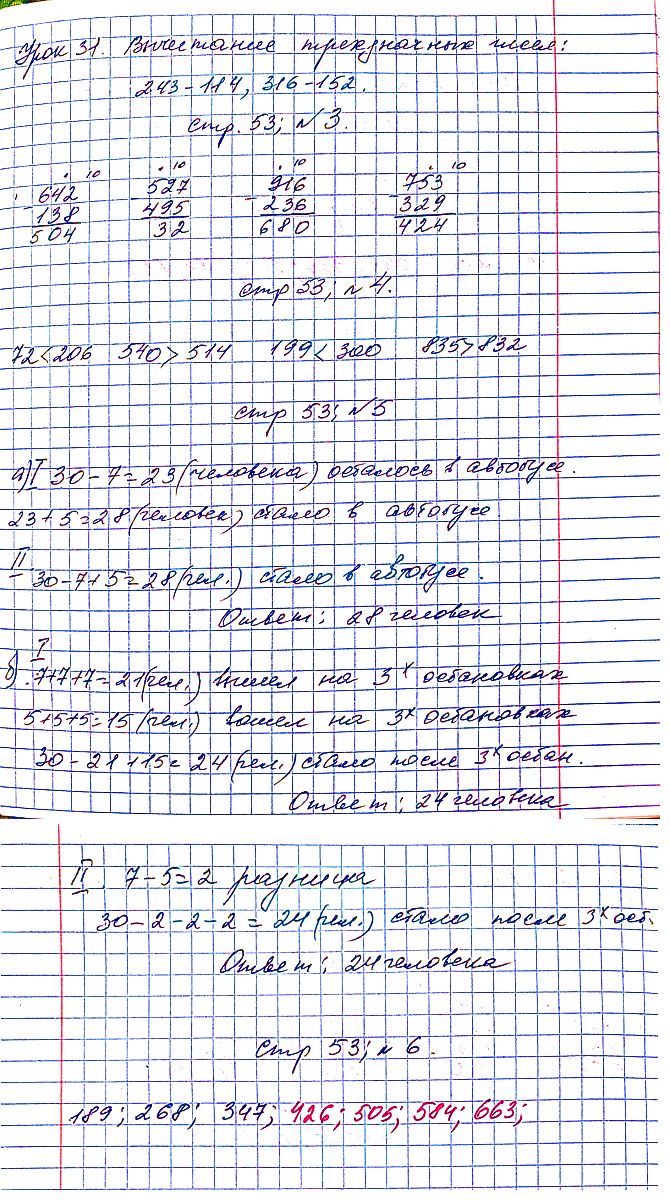 Урок 31. Вычитание трехзначных чисел:
243-114, 316-152.
стр. 53; №3.
. 10 . 10 . 10 . 10
642 527 916 753
- 138 - 495 - 236 - 329
504 32 680 424
стр 53; №4.
72<206 540>514 199<300 835>832
стр 53; №5
а) I 30-7=23(человека) осталось в автобусе.
23+5=28(человек) стало в автобусе
II 30-7+5=28(чел.) стало в автобусе.
Ответ: 28 человек
I
б) 7+7+7=21(чел.) вышел на 3х остановках
5+5+5=15(чел.) вошел на 3х остановках
30-21+15=24(чел.) стало после 3х остан.
Ответ: 24 человека
II. 7-5=2 разница
30-2-2-2=24(чел.) стало после 3х ост.
Ответ: 24 человека
стр 53; №6.
189; 268; 347; 426; 505; 584; 663;